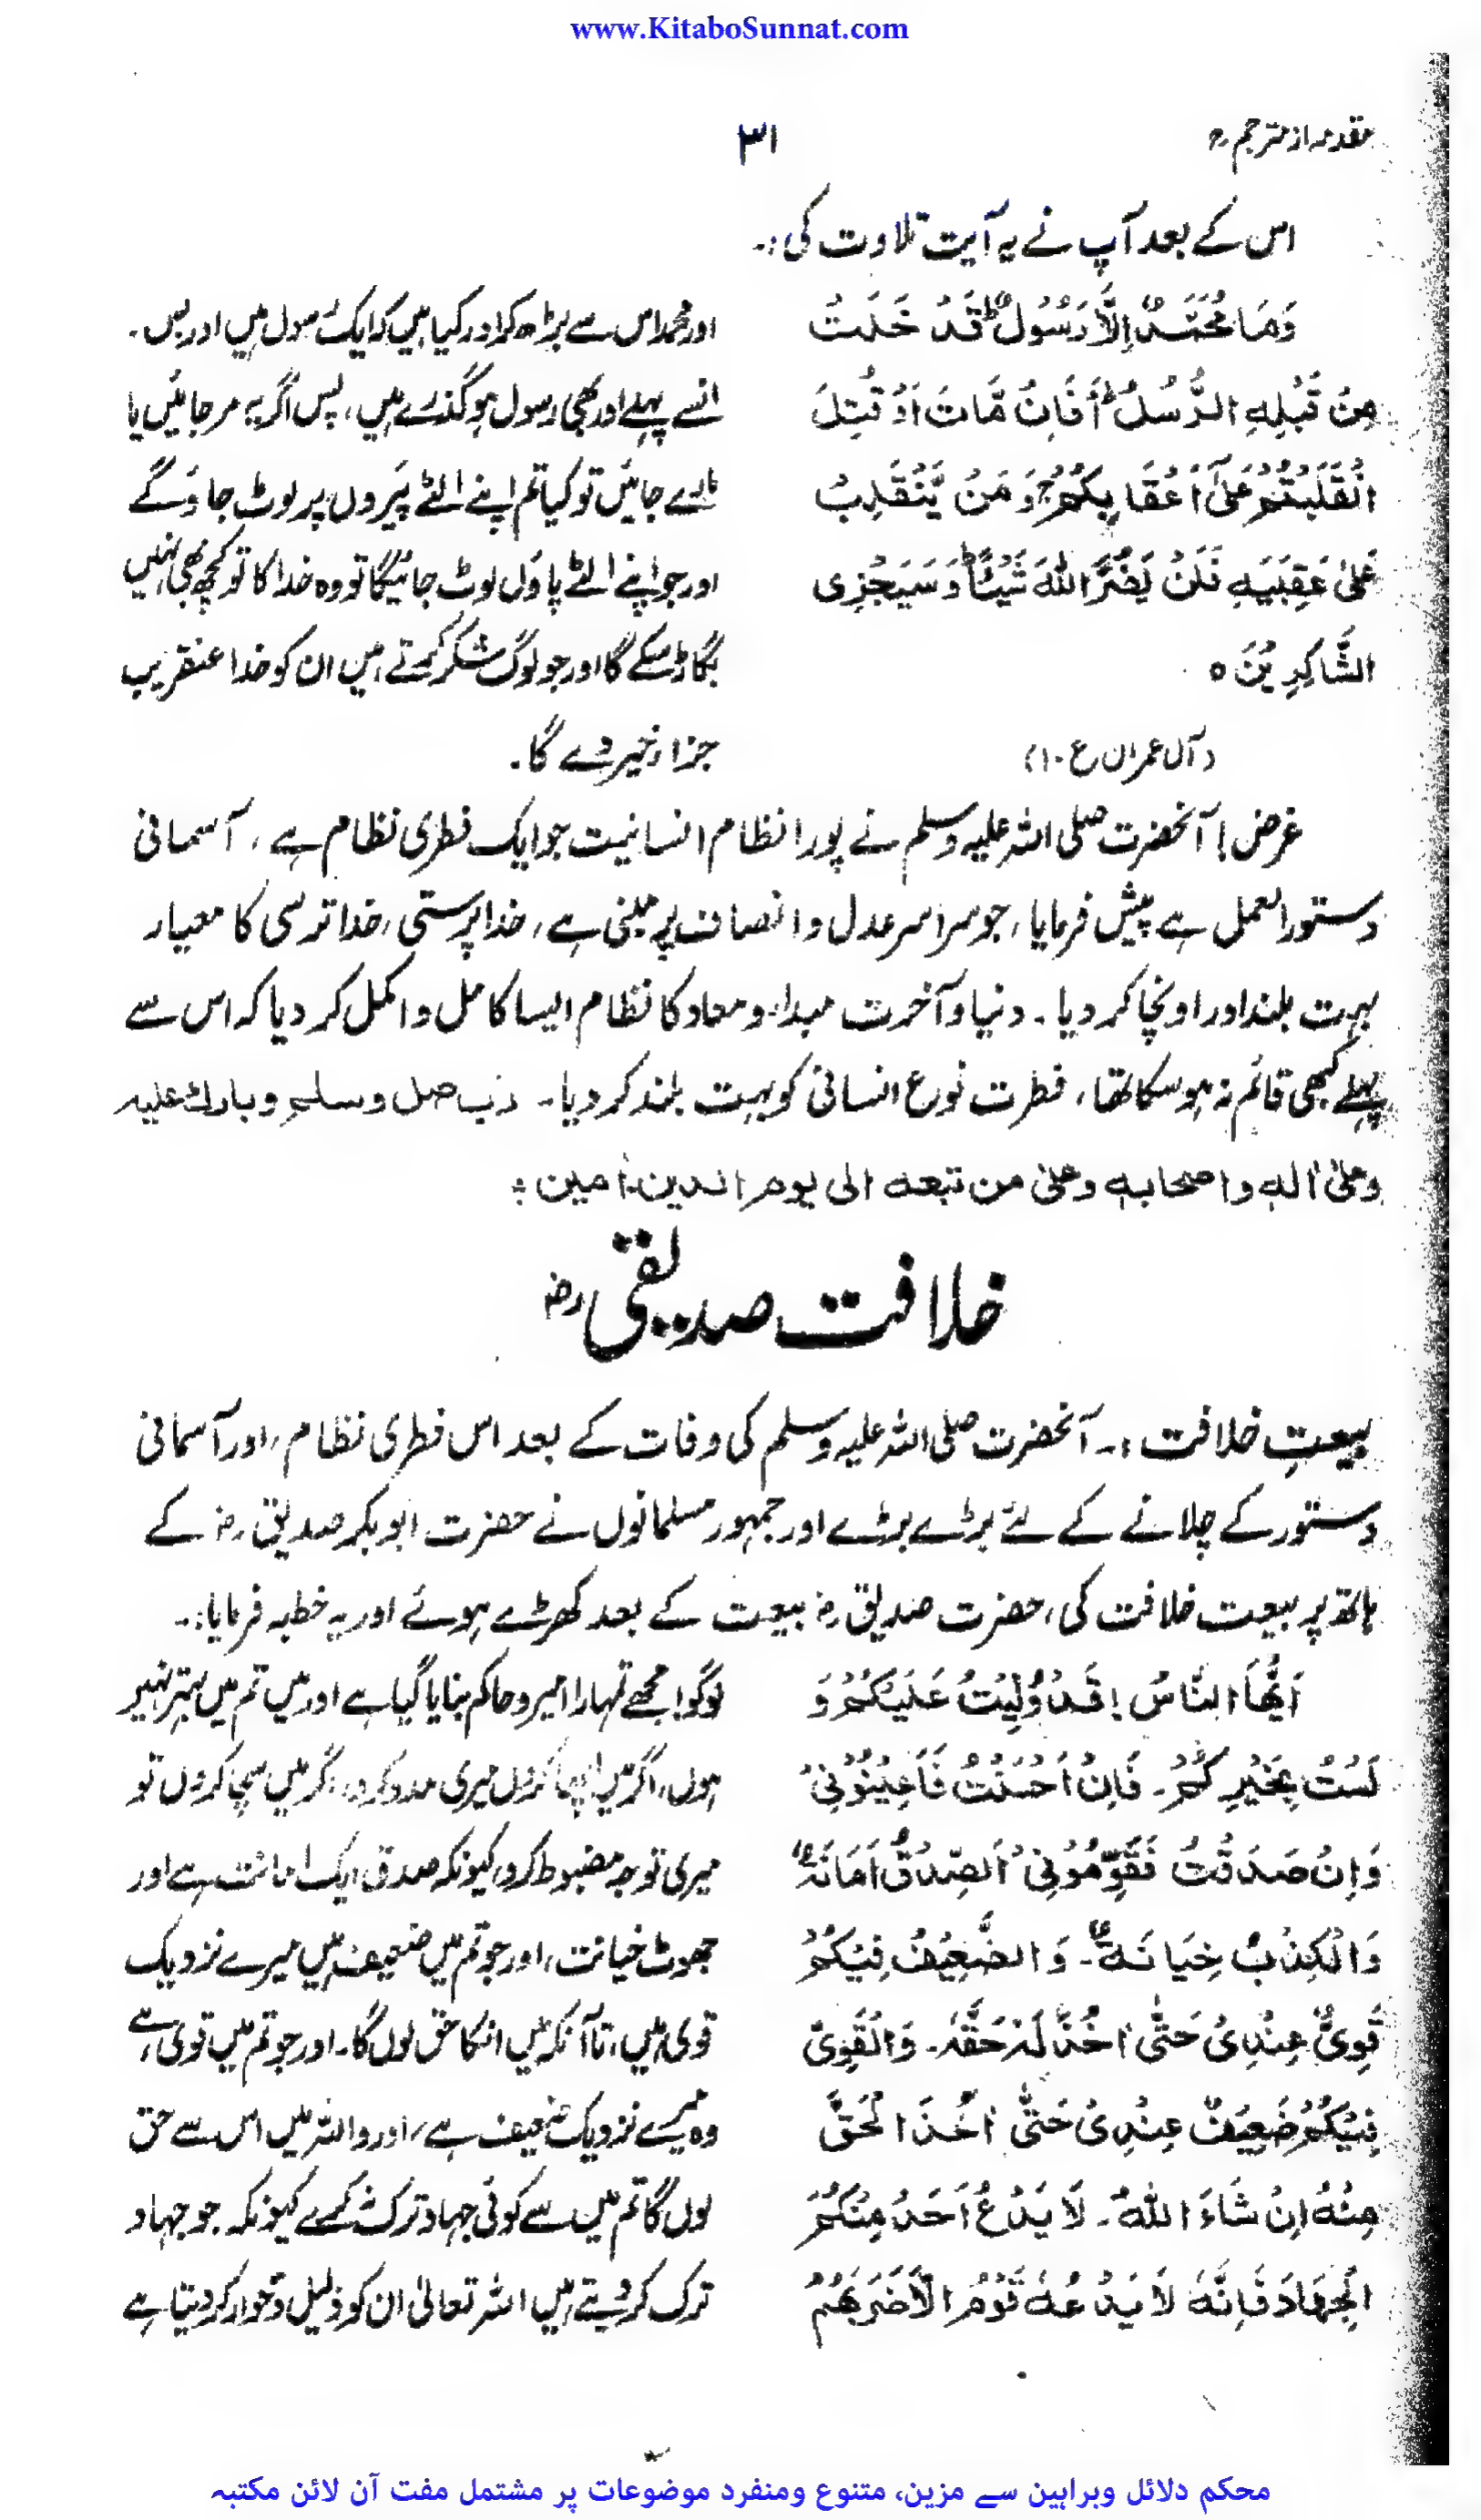 www.KitaboSunnat.com
مقدمہ از مترجم رح
۳۱
اس کے بعد آپ نے یہ آیت تلاوت کی :۔
وَمَا مُحَمَّدٌ اِلَّا رَسُوْلٌ ج قَدْ خَلَتْ
مِنْ قَبْلِهِ الرُّسُلُ ط اَفَاِنْ مَّاتَ اَوْ قُتِلَ
انْقَلَبْتُمْ عَلٰٓى اَعْقَابِكُمْ ج وَمَنْ يَّنْقَلِبْ
عَلٰى عَقِبَيْهِ فَلَنْ يَضُرَّ اللّٰهَ شَيْئًا ط وَسَيَجْزِى
الشَّاكِرِيْنَ ۝
(آل عمران ع ۱۰)
اور محمد اس سے بڑھ کر اور کیا ہیں کہ ایک رسول ہیں اور بس۔
انسے پہلے اور بھی رسول ہو گذرے ہیں، پس اگر یہ مر جائیں یا
مارے جائیں تو کیا تم اپنے الٹے پَیروں پر لوٹ جاؤ گے
اور جو اپنے الٹے پاؤں لوٹ جائیگا تو وہ خدا کا تو کچھ بھی نہیں
بگاڑ سکے گا اور جو لوگ شکر کرتے ہیں ان کو خدا عنقریب
جزاء خیر دے گا۔
غرض! آنحضرت صلی اللہ علیہ وسلم نے پورا نظام انسانیت جو ایک فطری نظام ہے، آسمانی
دستور العمل سے پیش فرمایا، جو سراسر عدل و انصاف پر مبنی ہے، خدا پرستی، خدا ترسی کا معیار
بہت بلند اور اونچا کر دیا۔ دنیا و آخرت مبداء و معاد کا نظام ایسا کامل و اکمل کر دیا کہ اس سے
پہلے کبھی قائم نہ ہو سکا تھا، فطرت نوع انسانی کو بہت بلند کر دیا۔ رب صل وسلم وبارك عليه
وعلىٰ اٰله واصحابه وعلىٰ من تبعه الى يوم الدين۔ اٰمين :
خلافت صدیقی رض
بیعتِ خلافت :۔ آنحضرت صلی اللہ علیہ وسلم کی وفات کے بعد اس فطری نظام، اور آسمانی
دستور کے چلانے کے لئے بڑے بڑے اور جمہور مسلمانوں نے حضرت ابو بکر صدیق رض کے
ہاتھ پر بیعت خلافت کی، حضرت صدیق رض بیعت کے بعد کھڑے ہوئے اور یہ خطبہ فرمایا:۔
اَيُّهَا النَّاسُ! قَدْ وُلِّيْتُ عَلَيْكُمْ وَ
لَسْتُ بِخَيْرِكُمْ۔ فَاِنْ اَحْسَنْتُ فَاَعِيْنُوْنِىْ
وَاِنْ صَدَقْتُ فَقَوِّمُوْنِىْ اَلصِّدْقُ اَمَانَةٌ
وَالْكِذْبُ خِيَانَةٌ۔ وَالضَّعِيْفُ فِيْكُمْ
قَوِىٌّ عِنْدِىْ حَتّٰى اٰخُذَ لَهٗ حَقَّهٗ۔ وَالْقَوِىُّ
فِيْكُمْ ضَعِيْفٌ عِنْدِىْ حَتّٰى اٰخُذَ الْحَقَّ
مِنْهُ اِنْ شَاءَ اللّٰهُ۔ لَا يَدْعُ اَحَدٌ مِنْكُمْ
الْجِهَادَ فَاِنَّهٗ لَا يَدْعُهٗ قَوْمٌ اِلَّا ضَرَبَهُمْ
لوگو! مجھے تمہارا امیر و حاکم بنایا گیا ہے اور میں تم میں بہتر نہیں
ہوں، اگر میں اچھا کروں میری مدد کرو، اگر میں سچا کروں تو
میری توجہ مضبوط کرو، کیونکہ صدق ایک امانت ہے اور
جھوٹ خیانت، اور جو تم میں ضعیف ہیں میرے نزدیک
قوی ہیں، تا آنکہ میں انکا حق لوں گا۔ اور جو تم میں قوی ہے
وہ میرے نزدیک ضعیف ہے، اور واللہ میں اس سے حق
لوں گا تم میں سے کوئی جہاد ترک نہ کرے کیونکہ جو جہاد
ترک کر دیتے ہیں اللہ تعالیٰ ان کو ذلیل و خوار کر دیتا ہے
محکم دلائل وبراہین سے مزین، متنوع ومنفرد موضوعات پر مشتمل مفت آن لائن مکتبہ